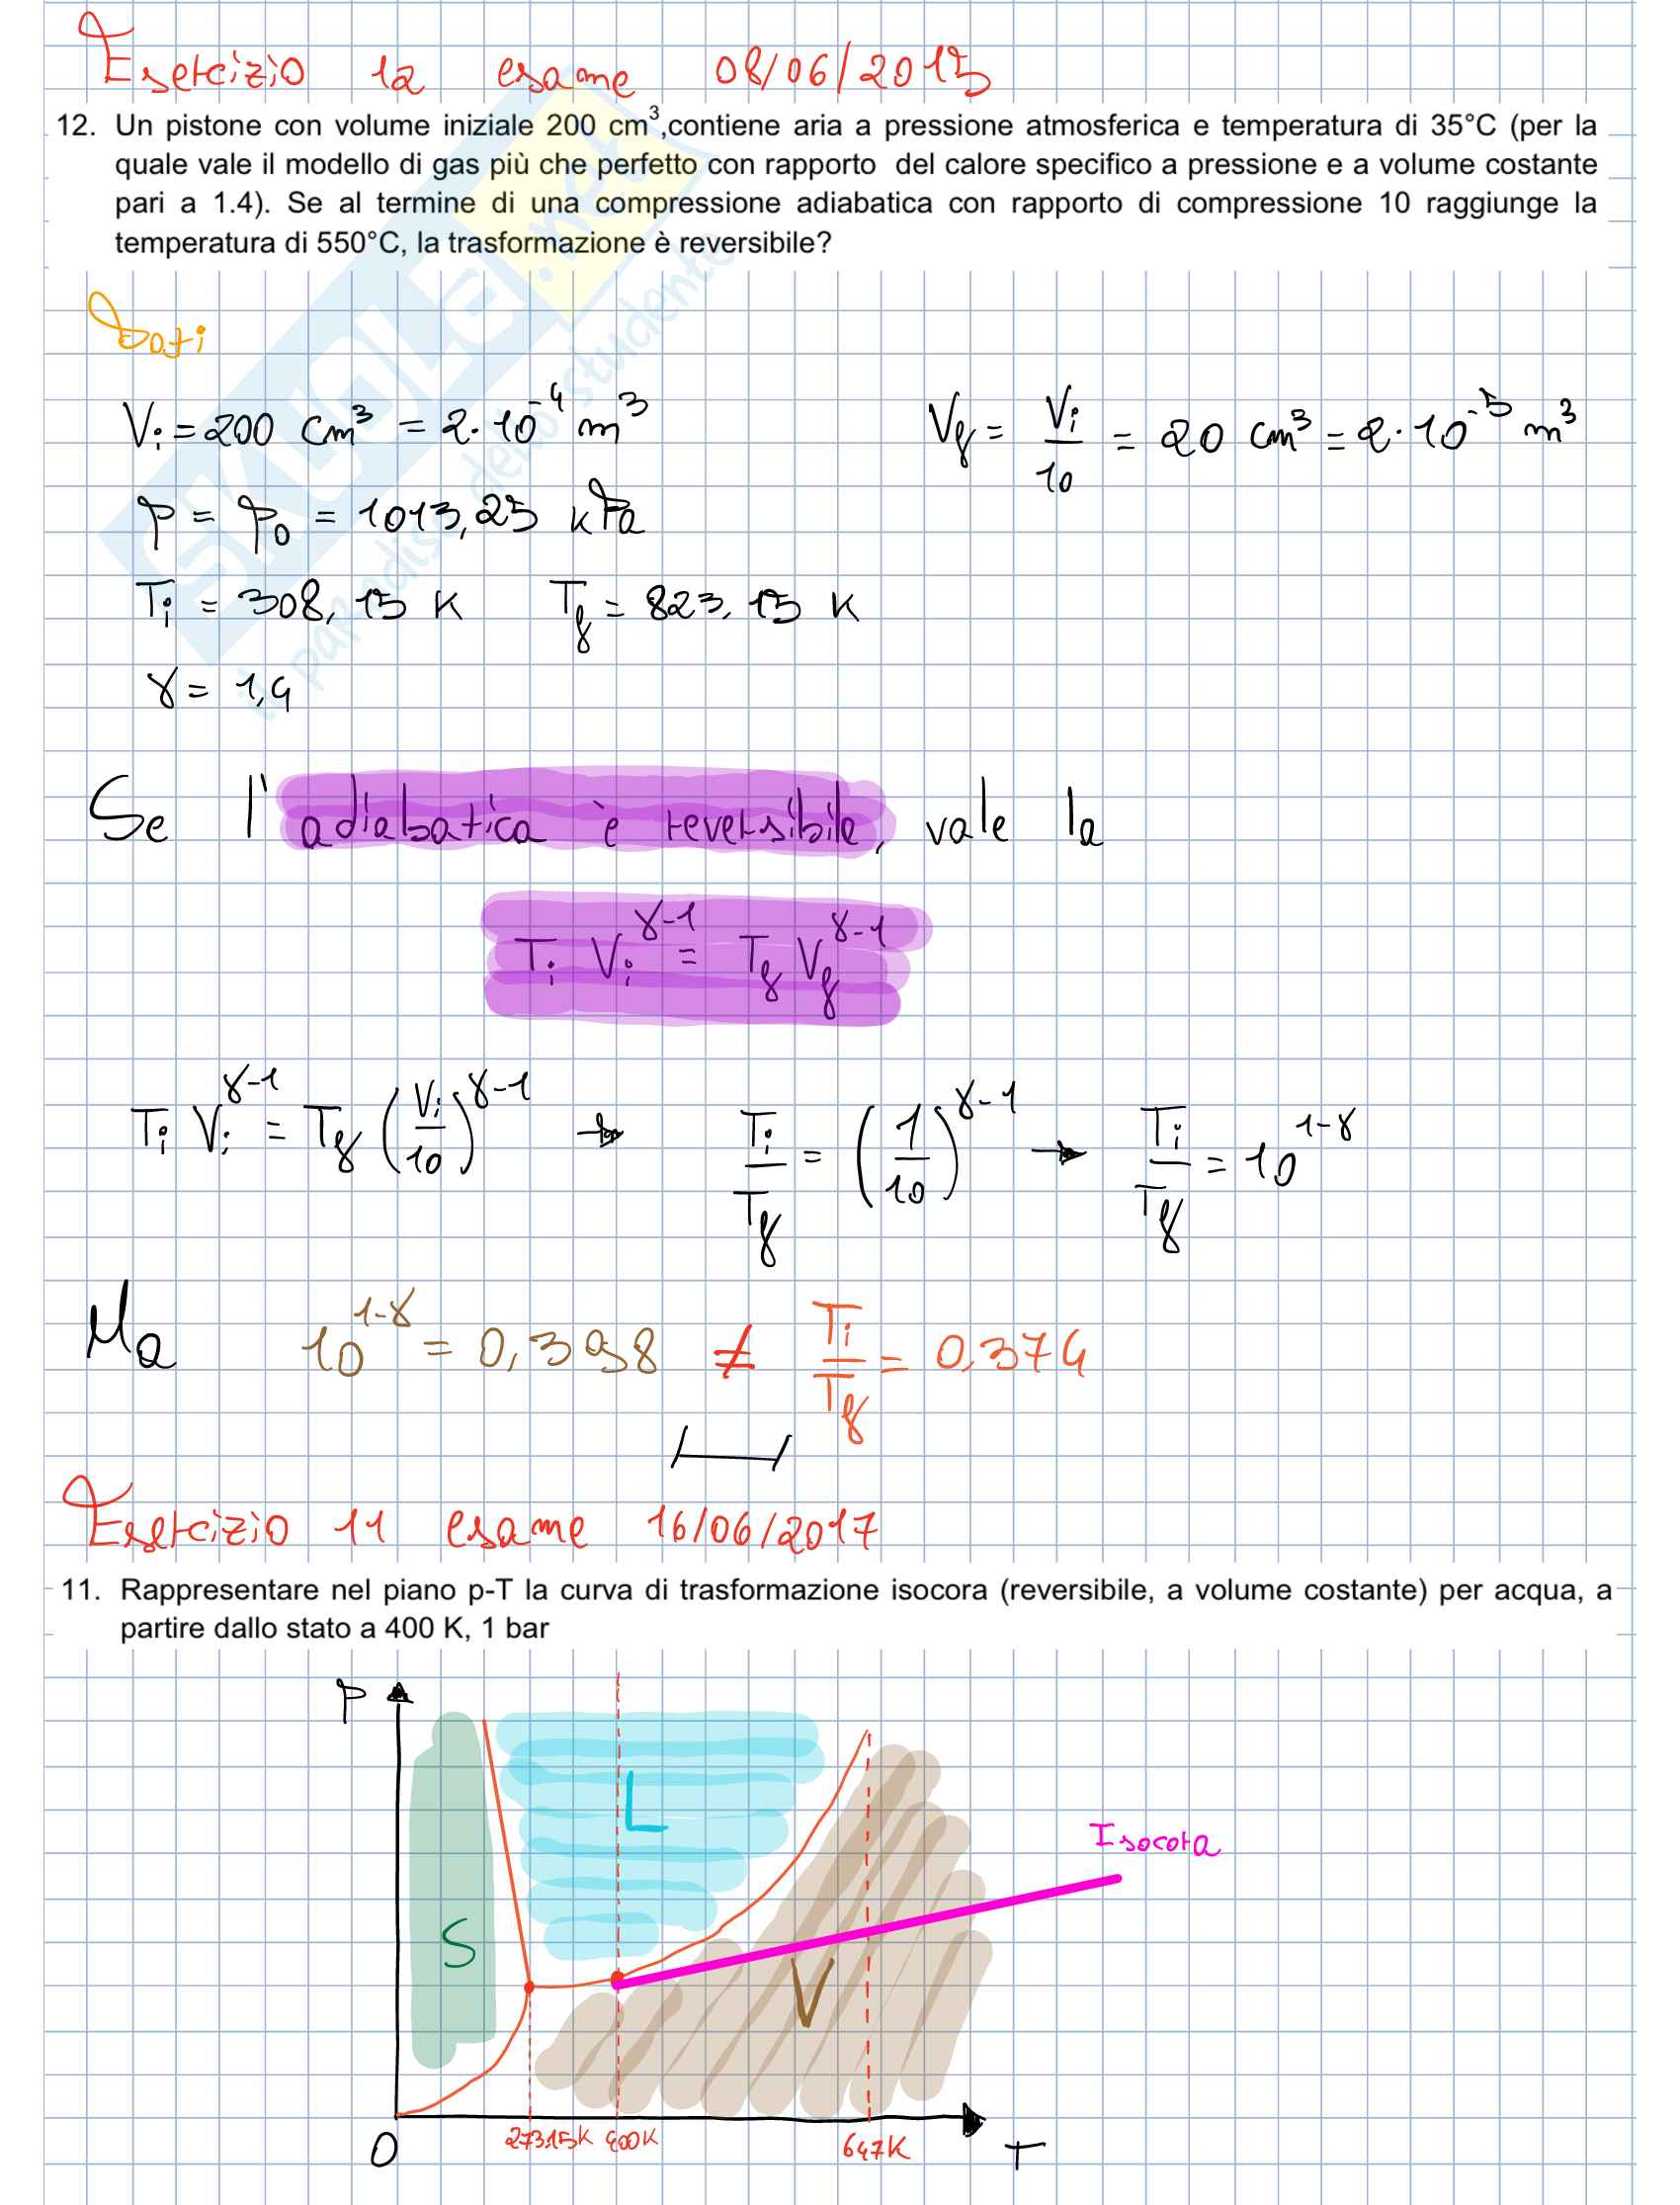 Esercizio 12 esame 08/06/2015
12. Un pistone con volume iniziale 200 cm³,contiene aria a pressione atmosferica e temperatura di 35°C (per la
quale vale il modello di gas più che perfetto con rapporto del calore specifico a pressione e a volume costante
pari a 1.4). Se al termine di una compressione adiabatica con rapporto di compressione 10 raggiunge la
temperatura di 550°C, la trasformazione è reversibile?
SKUOLA.net
il paradiso dello studente
Dati
Vi = 200 cm³ = 2·10⁻⁴ m³ Vf = Vi/10 = 20 cm³ = 2·10⁻⁵ m³
p = p₀ = 1013,25 kPa
Ti = 308,15 K Tf = 823,15 K
γ = 1,4
Se l'adiabatica è reversibile, vale la
Ti Vi^γ-1 = Tf Vf^γ-1
Ti Vi^γ-1 = Tf (Vi/10)^γ-1 → Ti/Tf = (1/10)^γ-1 → Ti/Tf = 10^1-γ
Ma 10^1-γ = 0,398 ≠ Ti/Tf = 0,374
Esercizio 11 esame 16/06/2017
11. Rappresentare nel piano p-T la curva di trasformazione isocora (reversibile, a volume costante) per acqua, a
partire dallo stato a 400 K, 1 bar
P
L
Isocora
S
V
273,15K 400K 647K
O T